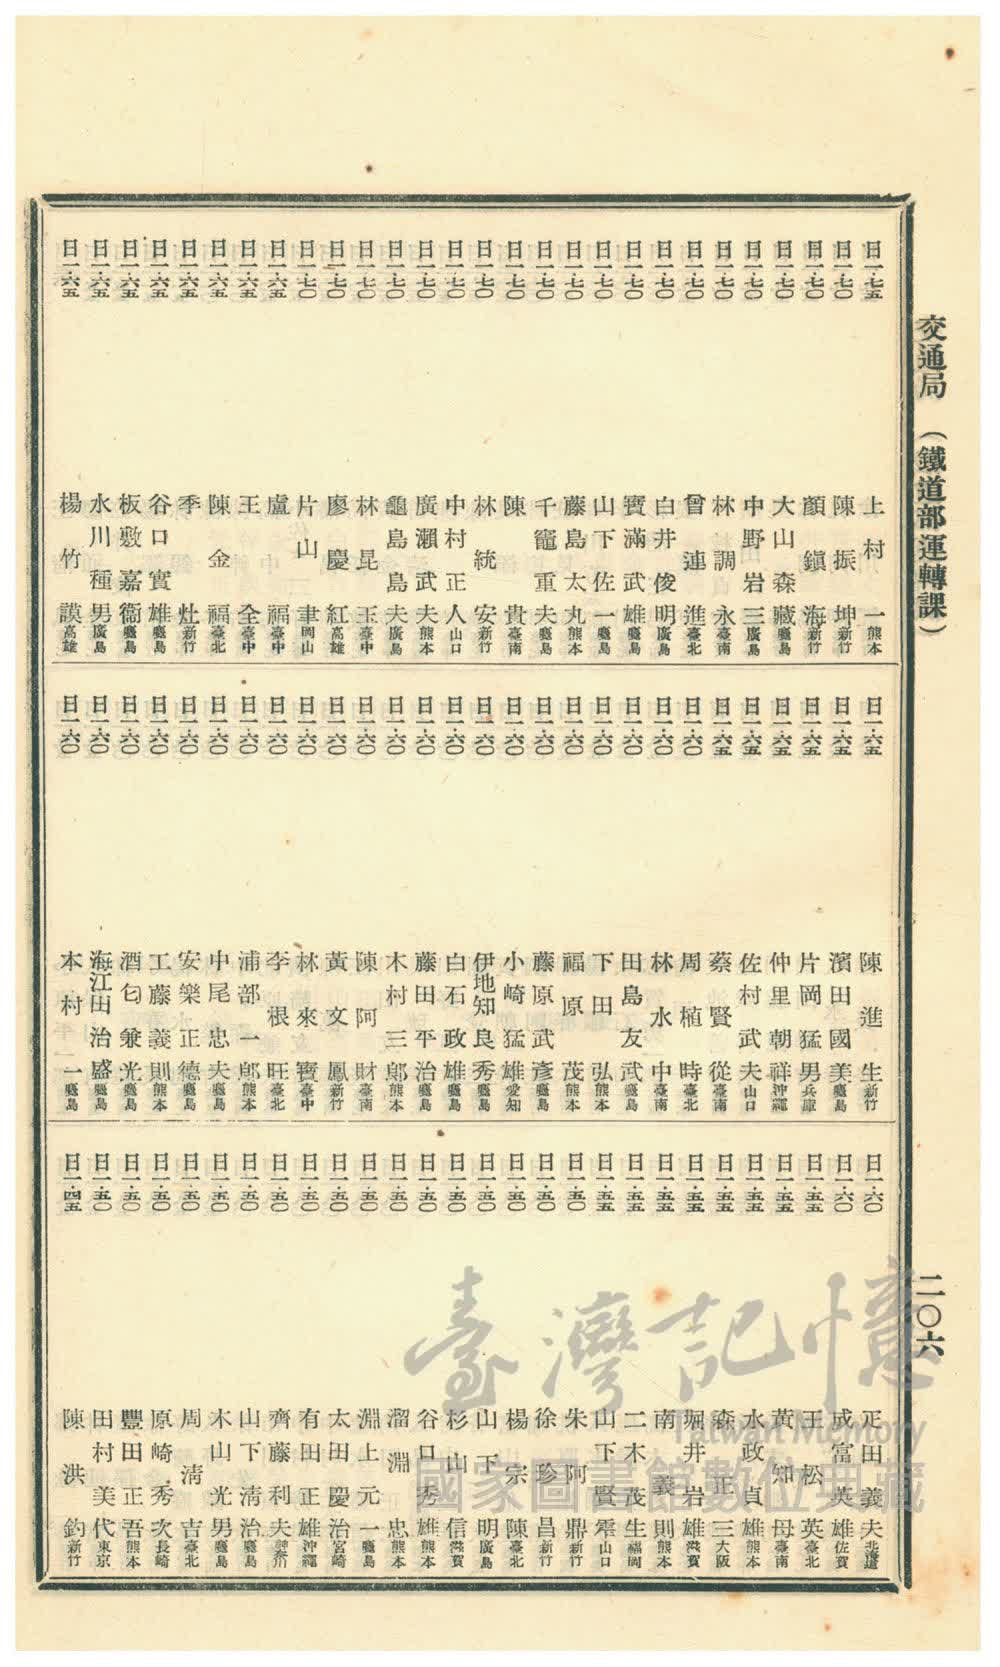 交通局 （鐵道部運轉課） 二〇六
日一・七五 上村一 熊本
日一・七〇 陳振坤 新竹
日一・七〇 顏鎭海 新竹
日一・七〇 大山森藏 鹿島
日一・七〇 中野岩三 廣島
日一・七〇 林調永 臺南
日一・七〇 曾連進 臺北
日一・七〇 白井俊明 廣島
日一・七〇 寶滿武雄 鹿島
日一・七〇 山下佐一 鹿島
日一・七〇 藤島太丸 熊本
日一・七〇 千竈重夫 鹿島
日一・七〇 陳貴 臺南
日一・七〇 林統安 新竹
日一・七〇 中村正人 山口
日一・七〇 廣瀨武夫 熊本
日一・七〇 龜島島夫 廣島
日一・七〇 林昆玉 臺中
日一・七〇 廖慶紅 高雄
日一・七〇 片山聿 岡山
日一・六五 盧福 臺中
日一・六五 王全 臺中
日一・六五 陳金福 臺北
日一・六五 季灶 新竹
日一・六五 谷口實雄 鹿島
日一・六五 板敷嘉衞 鹿島
日一・六五 水川種男 廣島
日一・六五 楊竹謨 高雄
日一・六五 陳進生 新竹
日一・六五 濱田國美 鹿島
日一・六五 片岡猛男 兵庫
日一・六五 仲里朝祥 沖繩
日一・六五 佐村武夫 山口
日一・六五 蔡賢從 臺南
日一・六〇 周植時 臺北
日一・六〇 林水中 臺南
日一・六〇 田島友武 鹿島
日一・六〇 下田弘 熊本
日一・六〇 福原茂 熊本
日一・六〇 藤原武彥 鹿島
日一・六〇 小崎猛雄 愛知
日一・六〇 伊地知良秀 鹿島
日一・六〇 白石政雄 鹿島
日一・六〇 藤田平治 鹿島
日一・六〇 木村三郞 熊本
日一・六〇 陳阿財 臺南
日一・六〇 黃文鳳 新竹
日一・六〇 林來寶 臺中
日一・六〇 李根旺 臺北
日一・六〇 浦部一郞 熊本
日一・六〇 中尾忠夫 鹿島
日一・六〇 安樂正德 鹿島
日一・六〇 工藤義則 熊本
日一・六〇 酒匂兼光 鹿島
日一・六〇 海江田治盛 鹿島
日一・六〇 本村一 鹿島
日一・六〇 疋田義夫 北海道
日一・六〇 成富英雄 佐賀
日一・五五 王松英 臺北
日一・五五 黃知母 臺南
日一・五五 水政貞雄 熊本
日一・五五 森正三 大阪
日一・五五 堀井岩雄 滋賀
日一・五五 南義則 熊本
日一・五五 二木茂生 福岡
日一・五五 山下賢 山口
日一・五〇 朱阿鼎 新竹
日一・五〇 徐珍昌 新竹
日一・五〇 楊宗陳 臺北
日一・五〇 山下明 廣島
日一・五〇 杉山信 滋賀
日一・五〇 谷口秀雄 熊本
日一・五〇 溜淵忠 熊本
日一・五〇 淵上元一 鹿島
日一・五〇 太田慶治 宮崎
日一・五〇 有田正雄 沖繩
日一・五〇 齊藤利夫
日一・五〇 山下淸治 鹿島
日一・五〇 木山光男 鹿島
日一・五〇 周淸吉 臺北
日一・五〇 原崎秀次 長崎
日一・五〇 豐田正吾 熊本
日一・五〇 田村美代 東京
日一・四五 陳洪釣 新竹
臺灣記憶
Taiwan Memory
國家圖書館數位典藏